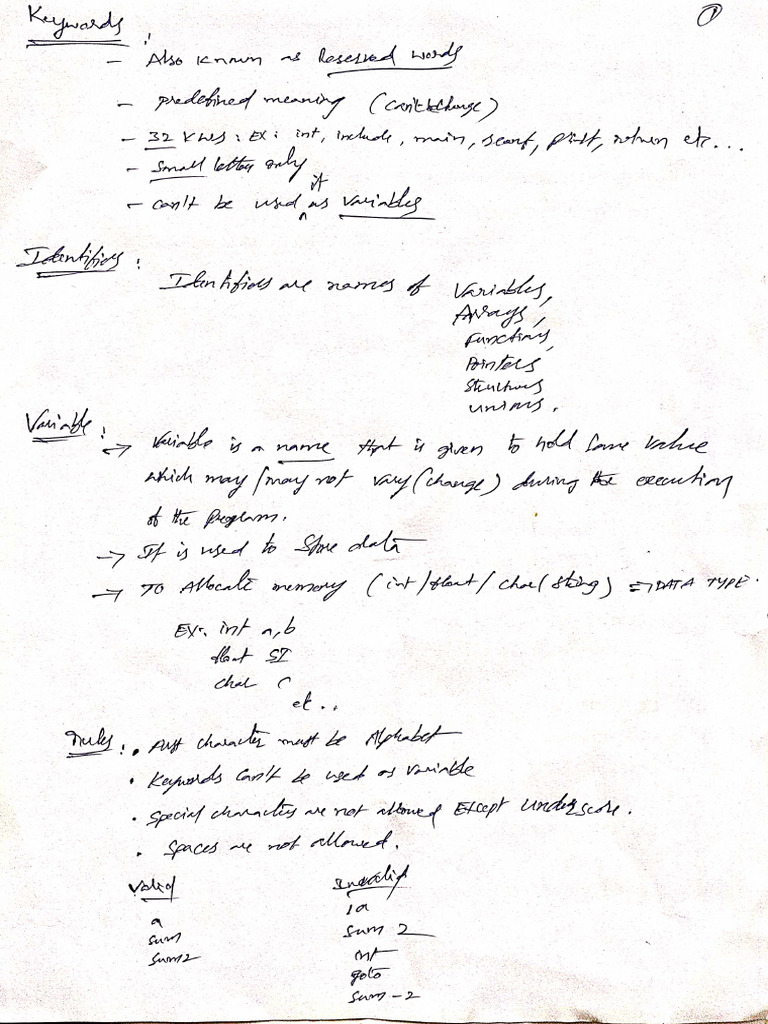 ①
Keywords :
- Also known as Reserved words
- predefined meaning (can't change)
- 32 KWs : Ex : int, include, main, scanf, printf, return etc...
- Small letter only
- can't be used it as variables
Identifiers :
Identifiers are names of Variables,
Arrays,
Functions,
Pointers
Structures
unions.
Variable :
→ Variable is a name that is given to hold some value
which may/may not vary (change) during the execution
of the program.
→ It is used to store data
→ To Allocate memory (int/float/char/string) ⇒ DATA TYPE.
Ex: int a,b
float SI
char C
etc..
Rules : • First character must be Alphabet
• Keywords can't be used as variable
• Special characters are not allowed Except underscore.
• Spaces are not allowed.
Valid Invalid
a 1a
sum sum 2
sum2 int
goto
sum-2